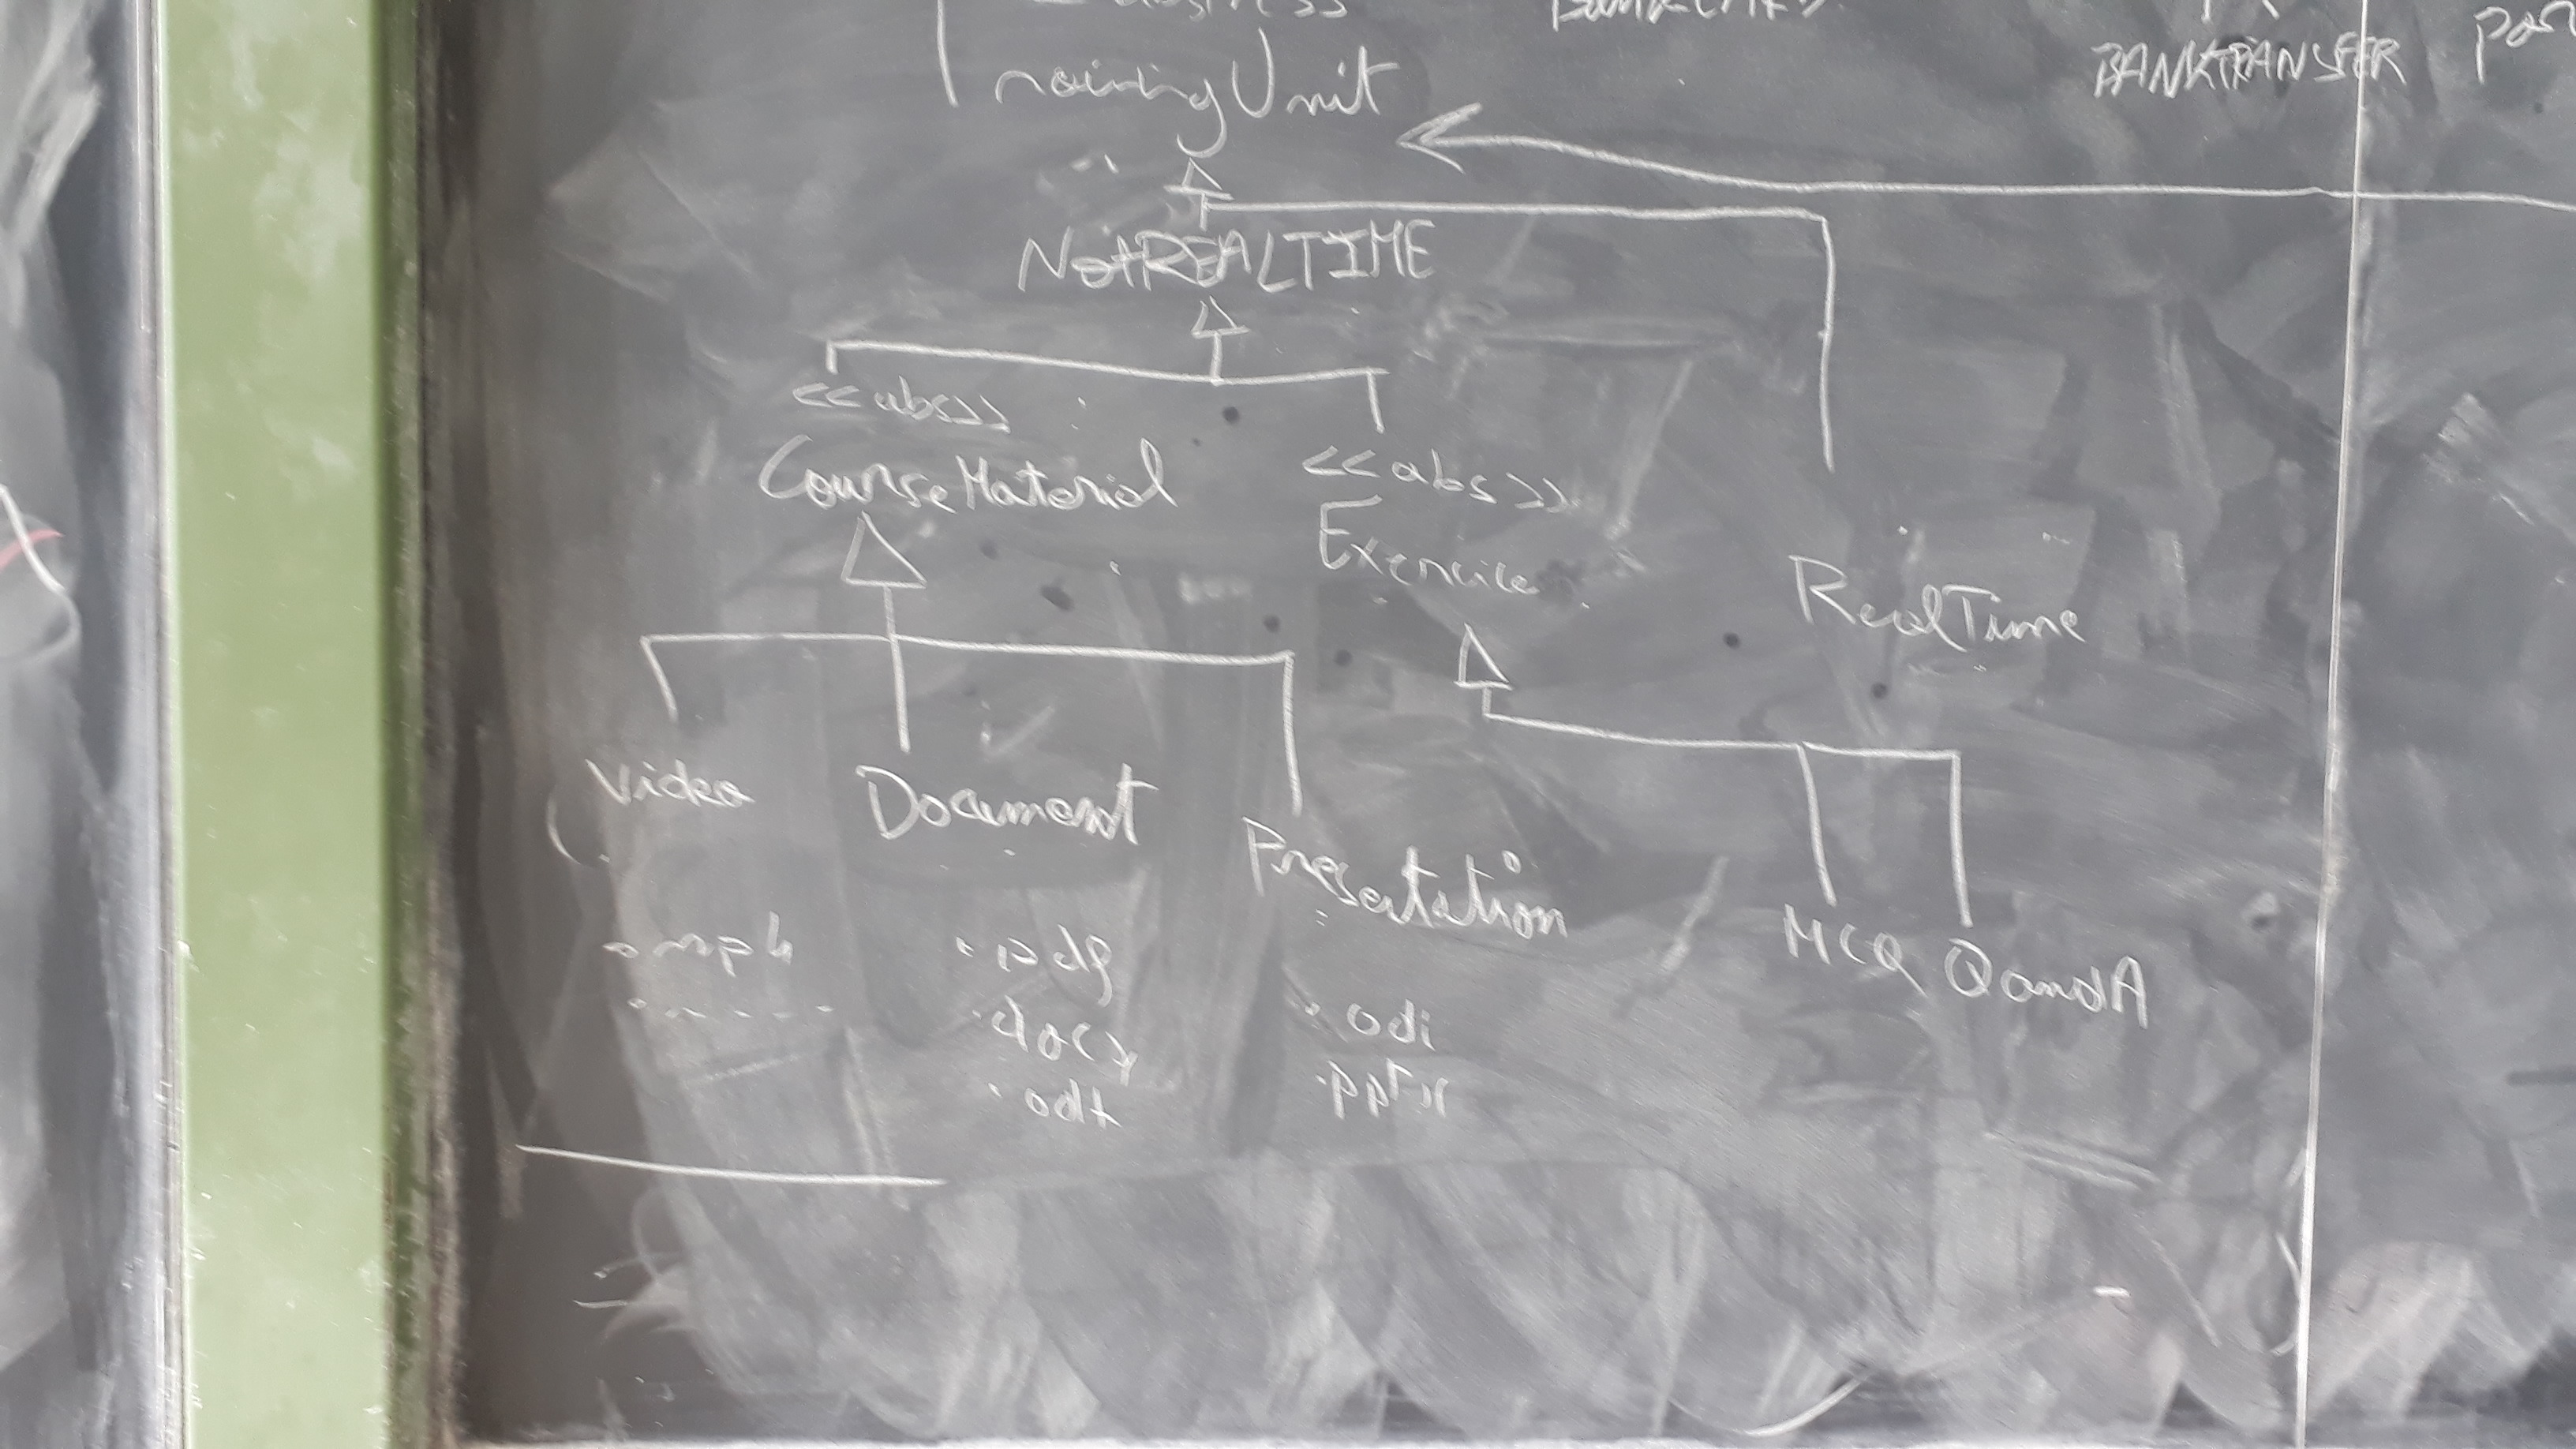 TrainingUnit
BANKTRANSFER
NotREALTIME
<<abs>>
CourseMaterial
<<abs>>
Exercice
RealTime
Video
Document
Presentation
MCQ QandA
.mp4
.pdf
.docx
.odt
.odi
.pptx